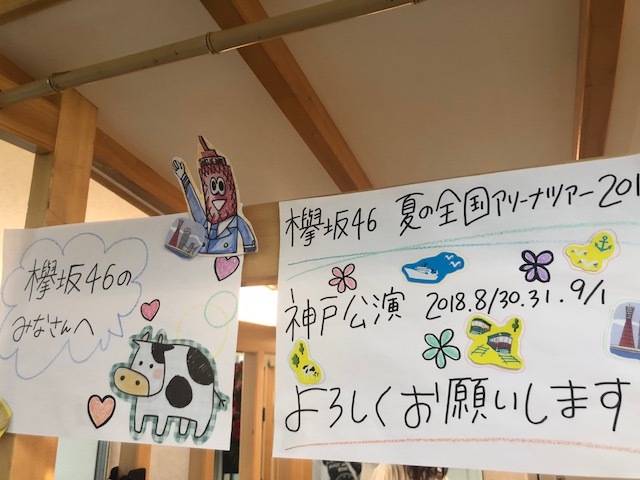 欅坂46の
みなさんへ
欅坂46 夏の全国アリーナツアー201
神戸公演 2018.8/30.31.9/1
よろしくお願いします